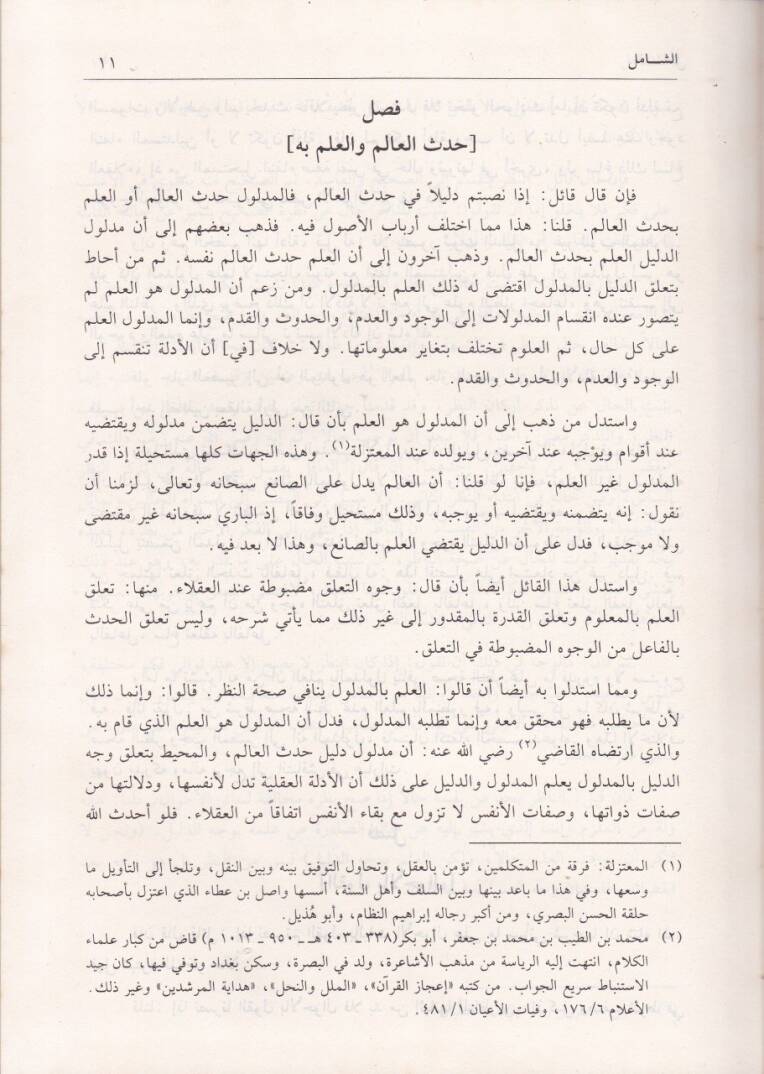 الشـــامل
١١
فصل
[حدث العالم والعلم به]
فإن قال قائل: إذا نصبتم دليلاً في حدث العالم، فالمدلول حدث العالم أو العلم
بحدث العالم. قلنا: هذا مما اختلف أرباب الأصول فيه. فذهب بعضهم إلى أن مدلول
الدليل العلم بحدث العالم. وذهب آخرون إلى أن العلم حدث العالم نفسه. ثم من أحاط
بتعلق الدليل بالمدلول اقتضى له ذلك العلم بالمدلول. ومن زعم أن المدلول هو العلم لم
يتصور عنده انقسام المدلولات إلى الوجود والعدم، والحدوث والقدم، وإنما المدلول العلم
على كل حال، ثم العلوم تختلف بتغاير معلوماتها. ولا خلاف [في] أن الأدلة تنقسم إلى
الوجود والعدم، والحدوث والقدم.
واستدل من ذهب إلى أن المدلول هو العلم بأن قال: الدليل يتضمن مدلوله ويقتضيه
عند أقوام ويوْجبه عند آخرين، ويولده عند المعتزلة(١). وهذه الجهات كلها مستحيلة إذا قدر
المدلول غير العلم، فإنا لو قلنا: أن العالم يدل على الصانع سبحانه وتعالى، لزمنا أن
نقول: إنه يتضمنه ويقتضيه أو يوجبه، وذلك مستحيل وفاقاً، إذ الباري سبحانه غير مقتضى
ولا موجب، فدل على أن الدليل يقتضي العلم بالصانع، وهذا لا بعد فيه.
واستدل هذا القائل أيضاً بأن قال: وجوه التعلق مضبوطة عند العقلاء. منها: تعلق
العلم بالمعلوم وتعلق القدرة بالمقدور إلى غير ذلك مما يأتي شرحه، وليس تعلق الحدث
بالفاعل من الوجوه المضبوطة في التعلق.
ومما استدلوا به أيضاً أن قالوا: العلم بالمدلول ينافي صحة النظر. قالوا: وإنما ذلك
لأن ما يطلبه فهو محقق معه وإنما تطلبه المدلول، فدل أن المدلول هو العلم الذي قام به.
والذي ارتضاه القاضي(٢) رضي الله عنه: أن مدلول دليل حدث العالم، والمحيط بتعلق وجه
الدليل بالمدلول يعلم المدلول والدليل على ذلك أن الأدلة العقلية تدل لأنفسها، ودلالتها من
صفات ذواتها، وصفات الأنفس لا تزول مع بقاء الأنفس اتفاقاً من العقلاء. فلو أحدث الله
(١) المعتزلة: فرقة من المتكلمين، تؤمن بالعقل، وتحاول التوفيق بينه وبين النقل، وتلجأ إلى التأويل ما
وسعها، وفي هذا ما باعد بينها وبين السلف وأهل السنة، أسسها واصل بن عطاء الذي اعتزل بأصحابه
حلقة الحسن البصري، ومن أكبر رجاله إبراهيم النظام، وأبو هُذيل.
(٢) محمد بن الطيب بن محمد بن جعفر، أبو بكر(٣٣٨ ـ ٤٠٣ هـ ـ ٩٥٠ ـ ١٠١٣ م) قاض من كبار علماء
الكلام، انتهت إليه الرياسة من مذهب الأشاعرة، ولد في البصرة، وسكن بغداد وتوفي فيها، كان جيد
الاستنباط سريع الجواب. من كتبه «إعجاز القرآن»، «الملل والنحل»، «هداية المرشدين» وغير ذلك.
الأعلام ١٧٦/٦، وفيات الأعيان ٤٨١/١.